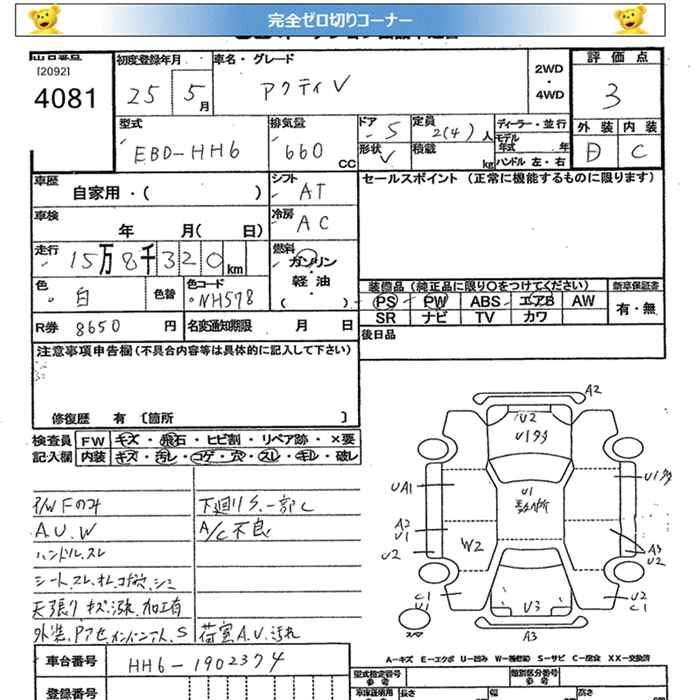 完全ゼロ切りコーナー
[2092]
4081
初度登録年月
25 5月
車名・グレード
アクティV
2WD・4WD
評価点
3
外装 内装
D C
型式
EBD-HH6
排気量
660cc
ドア
5
形状
V
定員
2(4)人
積載
kg
ディーラー・並行
モデル年式 年
ハンドル 左・右
車歴
自家用・( )
シフト
AT
セールスポイント (正常に機能するものに限ります)
車検
年 月( 日)
冷房
AC
走行
15万8千320km
燃料
ガソリン
軽油
( )
色
白
色替
色コード
NH578
装備品 (純正品に限り○をつけてください)
PS PW ABS エアB AW
SR ナビ TV カワ
新車保証書
有・無
R券 8650円
名変通知期限 月 日
後日品
注意事項申告欄 (不具合内容等は具体的に記入して下さい)
修復歴 有 〔箇所 〕
検査員記入欄
FW キズ・飛石・ヒビ割・リペア跡・×要
内装 キズ・汚レ・コゲ・穴・スレ・キレ・破レ
P/W Fのみ
A.U.W
ハンドル.スレ
下廻りS.一部C
A/C不良
天張り キズ
荷室A.U.汚れ
A2
U2
U1多
U1
U1多
UA1
A2
U1
U2
W2
A3
U2
C1
U1
U2
C1
U3
A3
A-キズ E-エクボ U-凹み W-補修跡 S-サビ C-腐食 XX-交換済
車台番号
HH6-1902374
登録番号
型式指定番号
参考
類別区分番号
参考
長さ 幅 高さ